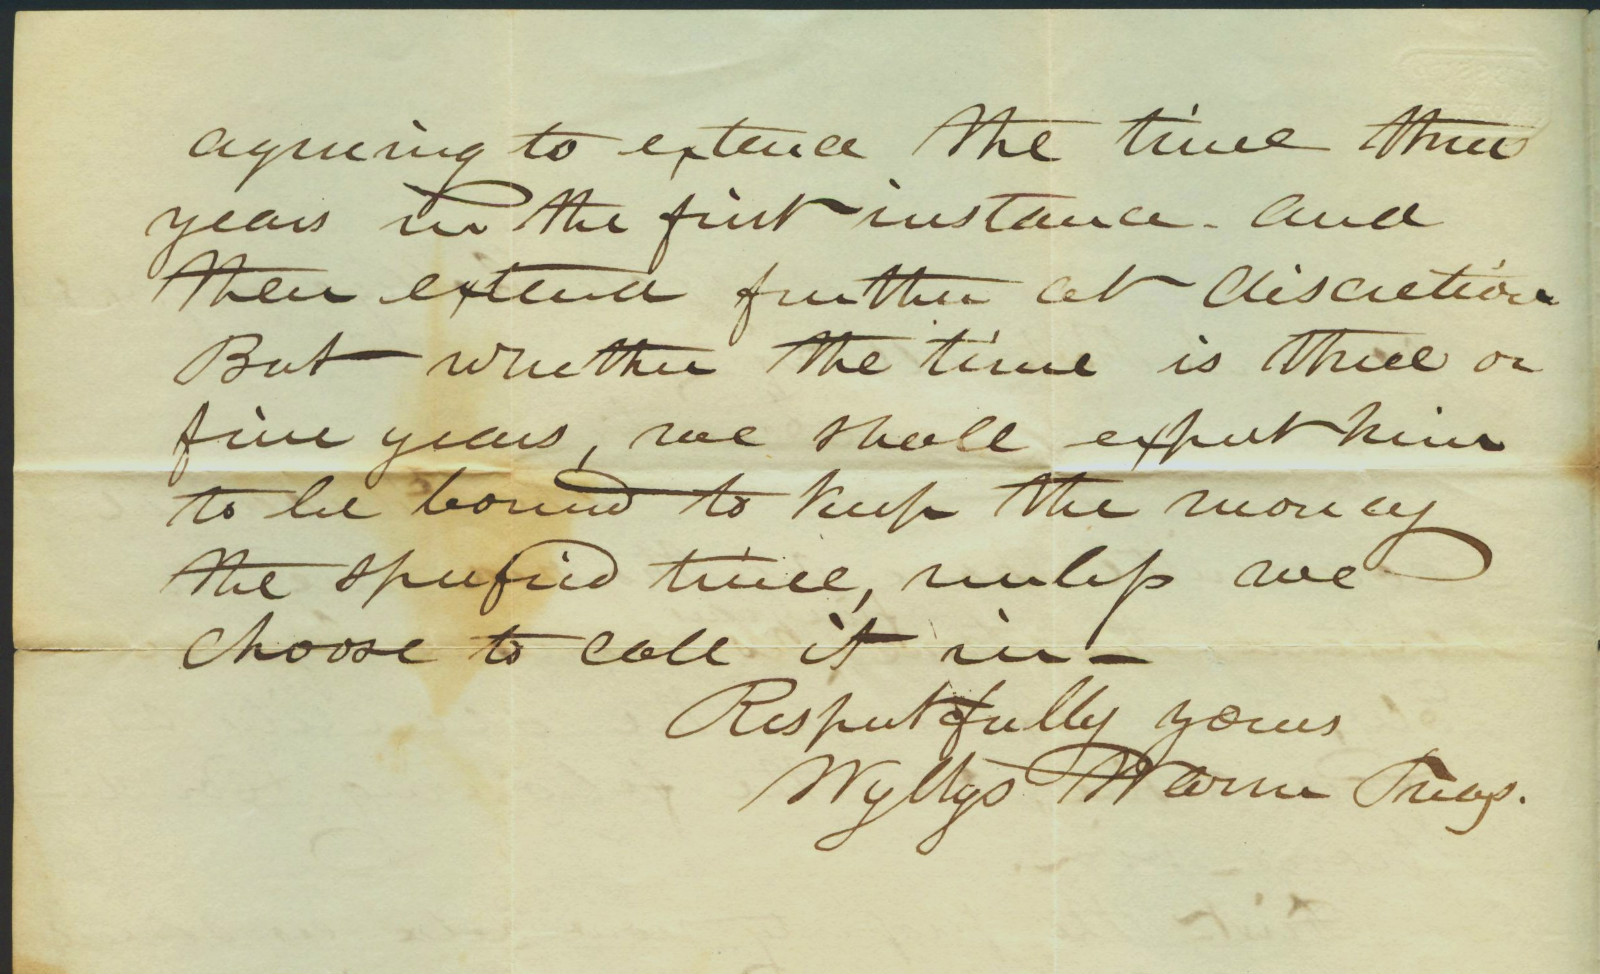 agreeing to extend the time three
years in the first instance - and
then extend further at discretion
But whether the time is three or
five years, we shall expect him
to be bound to keep the money
the specified time, unless we
choose to call it in -
Respectfully yours
Wyllys Warner Treas.